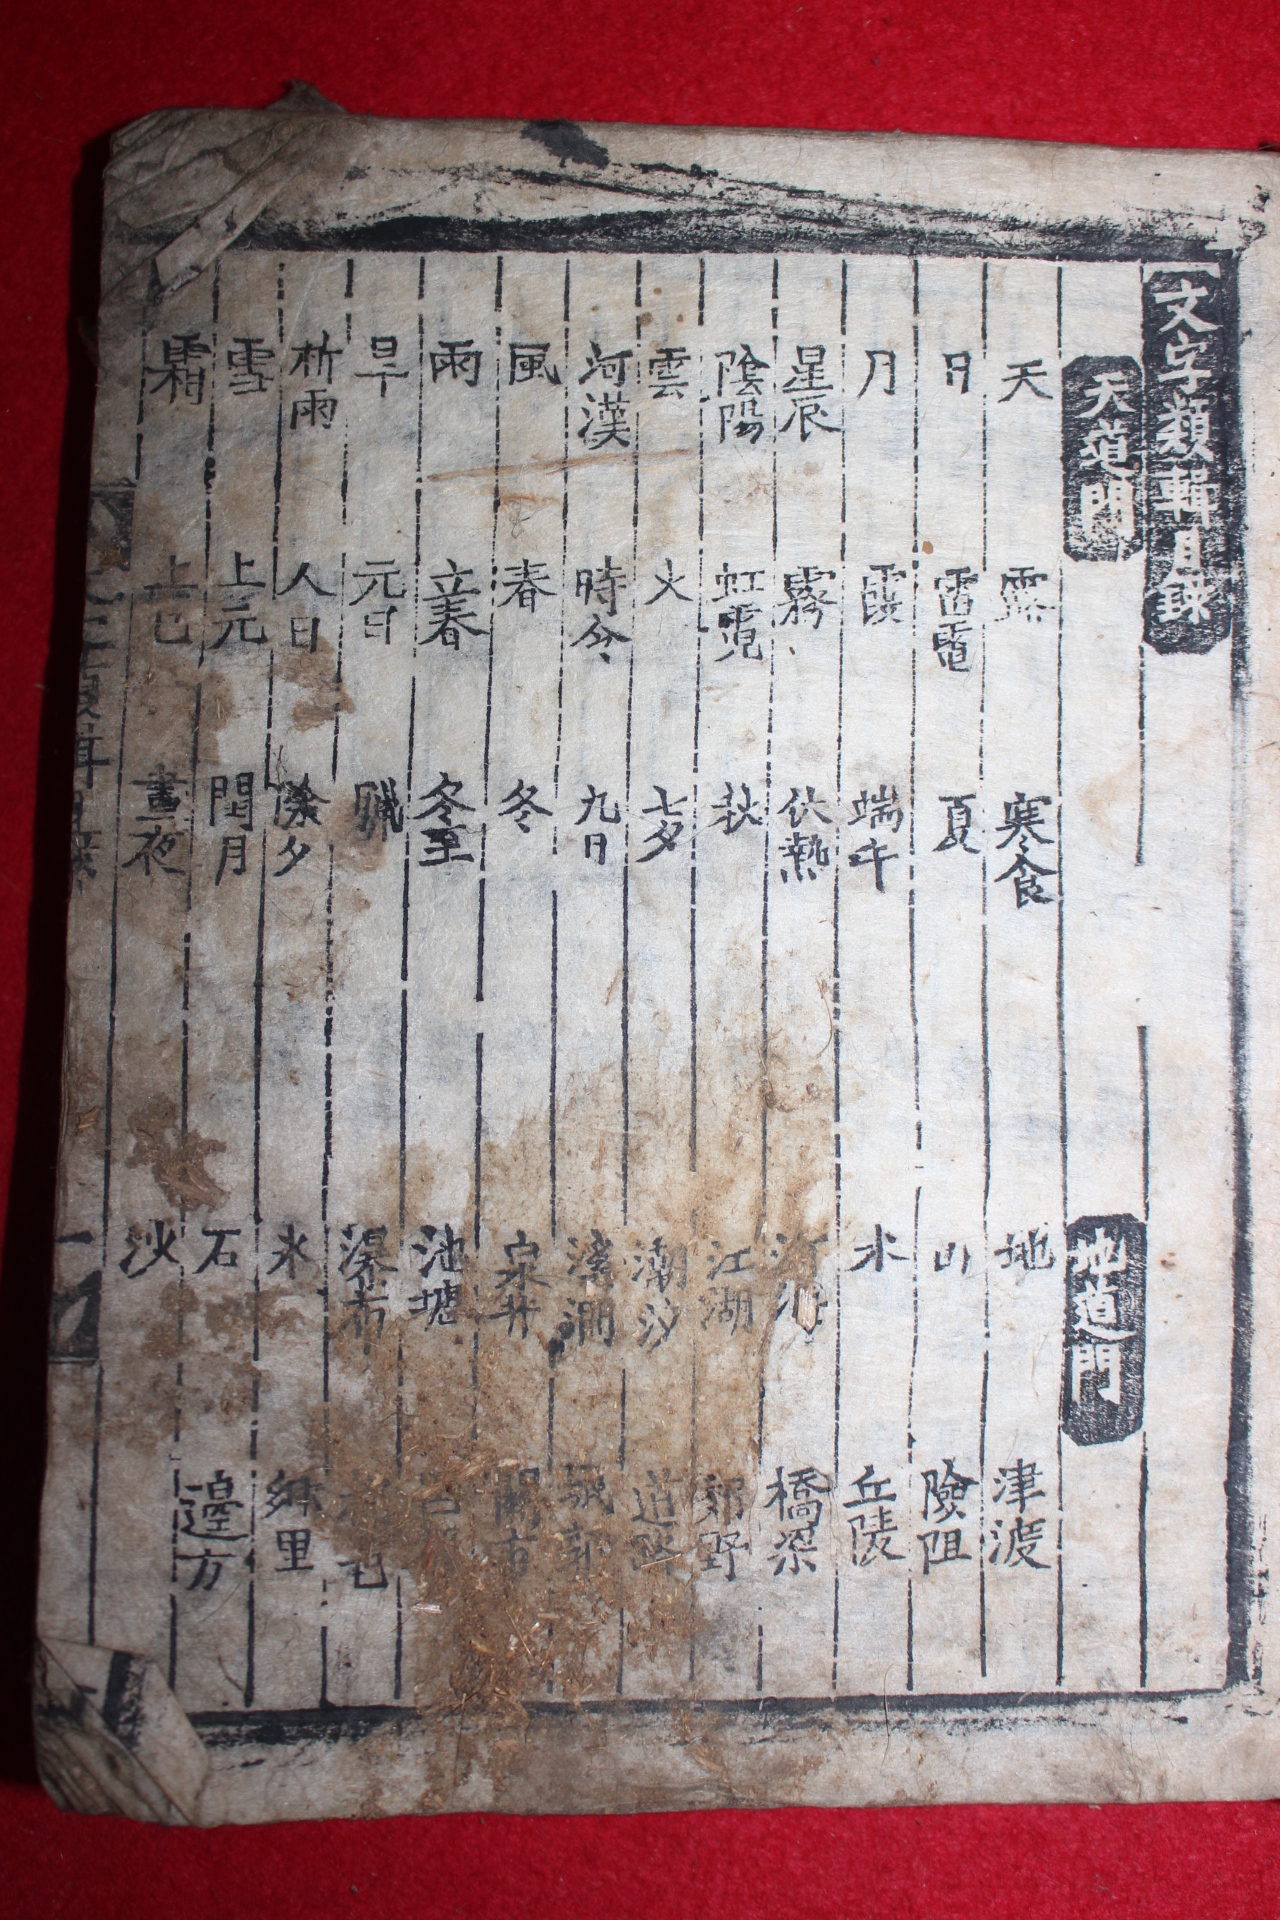 文字類輯目錄
天道門 地道門
天 露 寒食 地 津渡
日 雷電 夏 山 險阻
月 霞 端午 水 丘陵
星辰 霧 伏熱 河海 橋梁
陰陽 虹霓 秋 江湖 郊野
雲 火 七夕 潮汐 道路
河漢 時令 九日 溪澗 城郭
風 春 冬 泉井 關市
雨 立春 冬至 池塘
旱 元日 臘 瀑布
祈雨 人日 除夕 氷 鄉里
雪 上元 閏月 石 邊方
霜 上巳 晝夜 沙